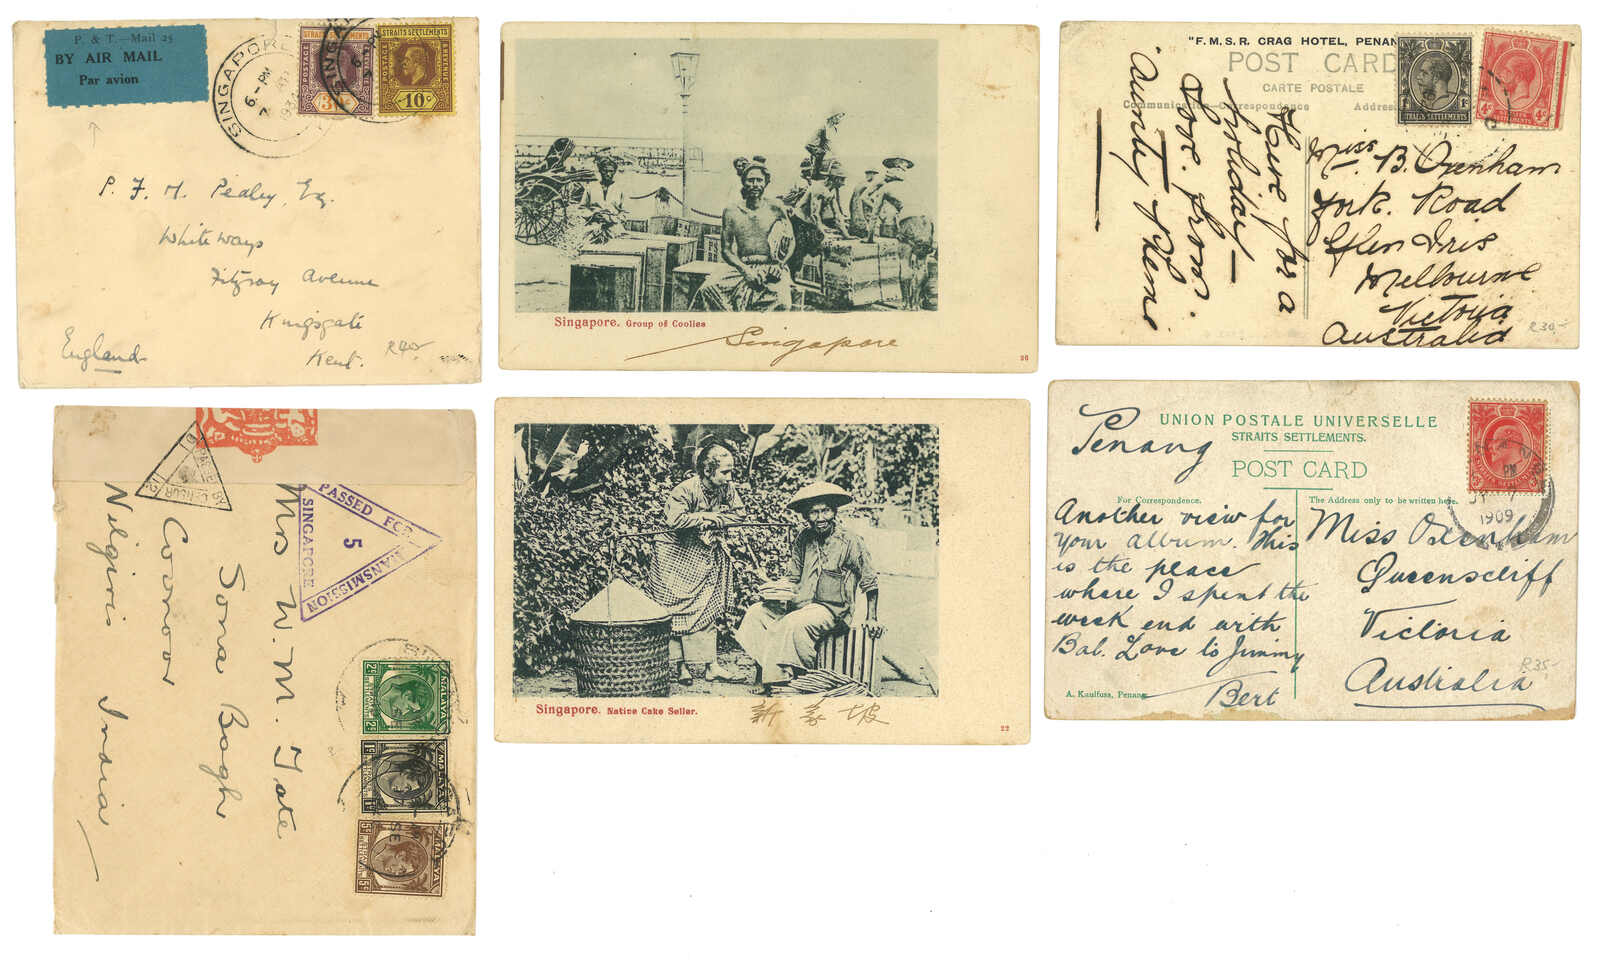 P. & T.—Mail 25
BY AIR MAIL
Par avion
SINGAPORE
6-PM
STRAITS SETTLEMENTS
POSTAGE
REVENUE
10c
P. F. H. Pealey, Esq.
Whiteways
Fitzroy Avenue
Kingsgate
Kent.
England
R40.-
Singapore. Group of Coolies
Singapore
26
"F.M.S.R. CRAG HOTEL, PENAN
POST CARD
CARTE POSTALE
Communication—Correspondence
Address
1c
STRAITS SETTLEMENTS
4c
Here for a
holiday –
Love from.
Aunty Rheni
Miss B. Oxenham
York. Road
Glen Iris
Melbourne
Victoria
Australia
R30.-
PASSED FOR
TRANSMISSION
SINGAPORE
5
Mrs W. M. Tate
Sona Bagh
Coonoor
Nilgiris India
MALAYA
2c
MALAYA
1c
MALAYA
5c
Singapore. Native Cake Seller.
新嘉坡
22
Penang
UNION POSTALE UNIVERSELLE
STRAITS SETTLEMENTS.
POST CARD
For Correspondence.
The Address only to be written here.
Another view for
your album. This
is the place
where I spent the
week end with
Bab. Love to Jimmy
Bert
A. Kaulfuss, Penang.
PM
1909
Miss Oxenham
Queenscliff
Victoria
Australia
R35-